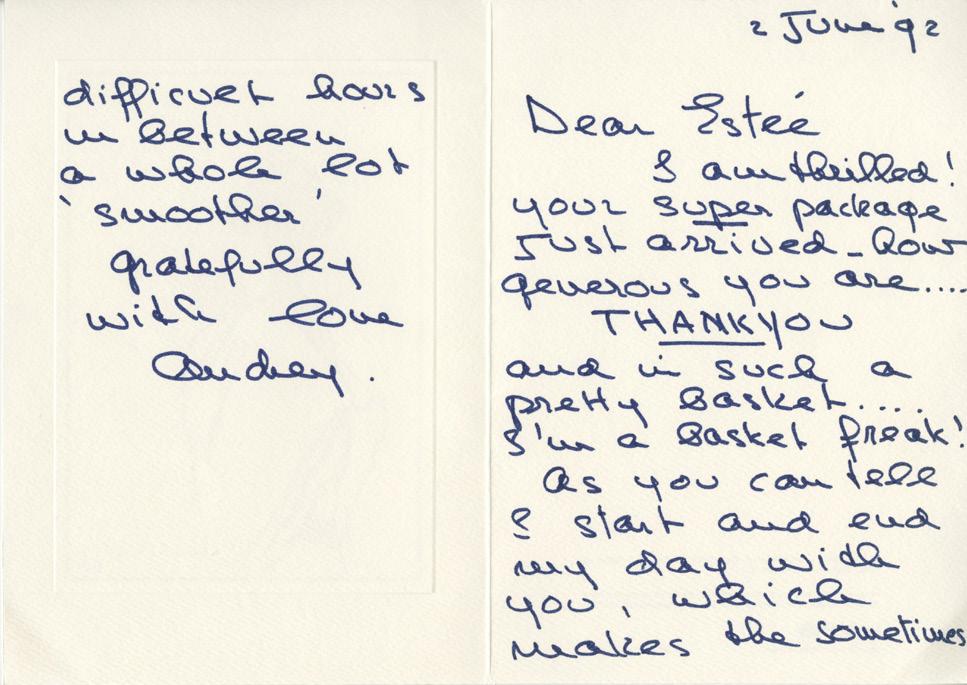 2 June 92
Dear Estée
I am thrilled!
your super package
Just arrived - How
generous you are....
THANKYOU
and in such a
pretty basket.....
I'm a basket freak!
As you can tell
I start and end
my day with
you, which
makes the sometimes
difficult hours
in between
a whole lot
'smoother'
gratefully
with love
Audrey.